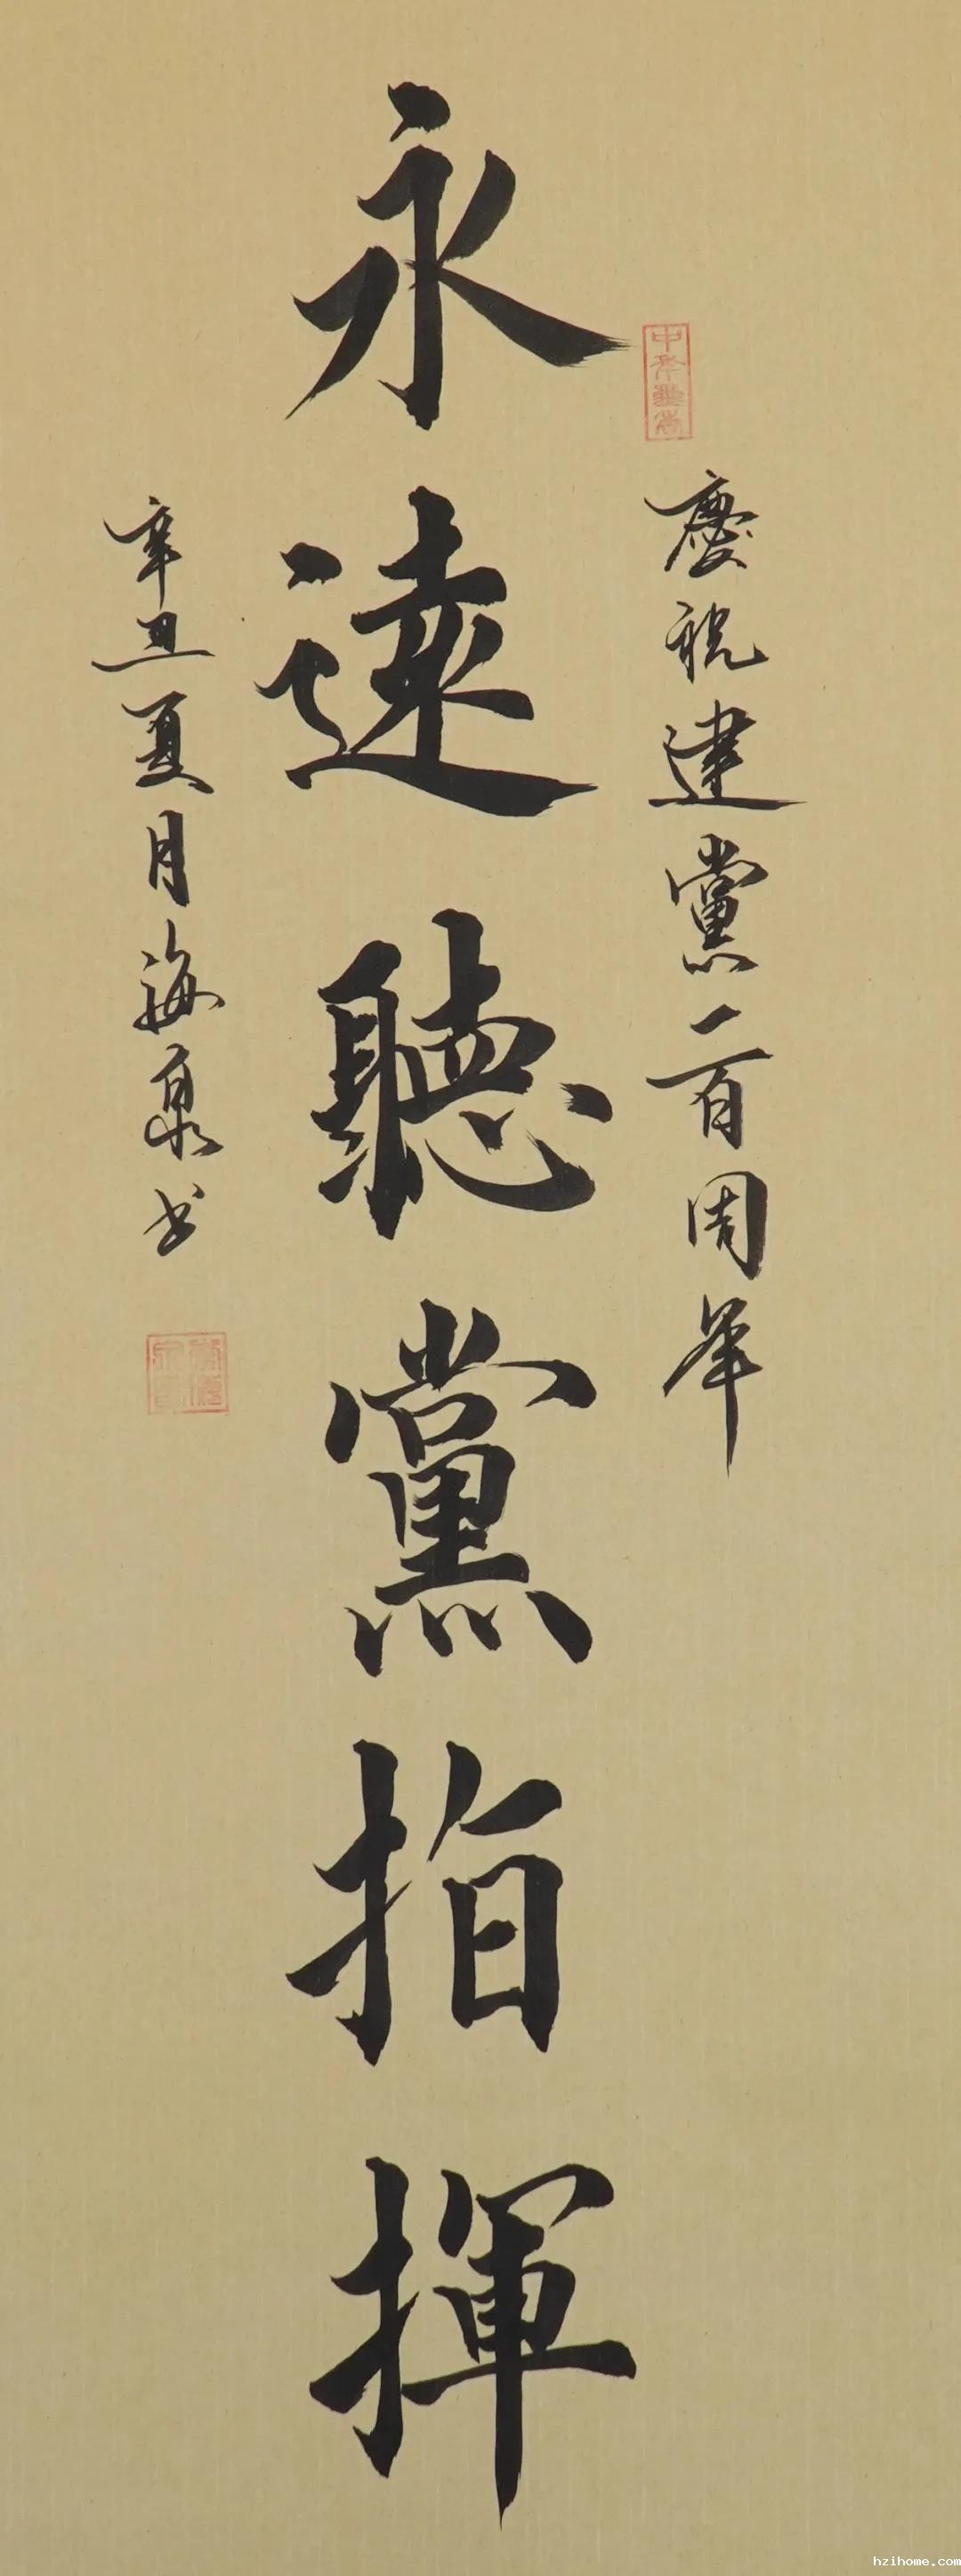 慶祝建黨一百周年
永遠聽黨指揮
辛丑夏月海泉书
hzihome.com